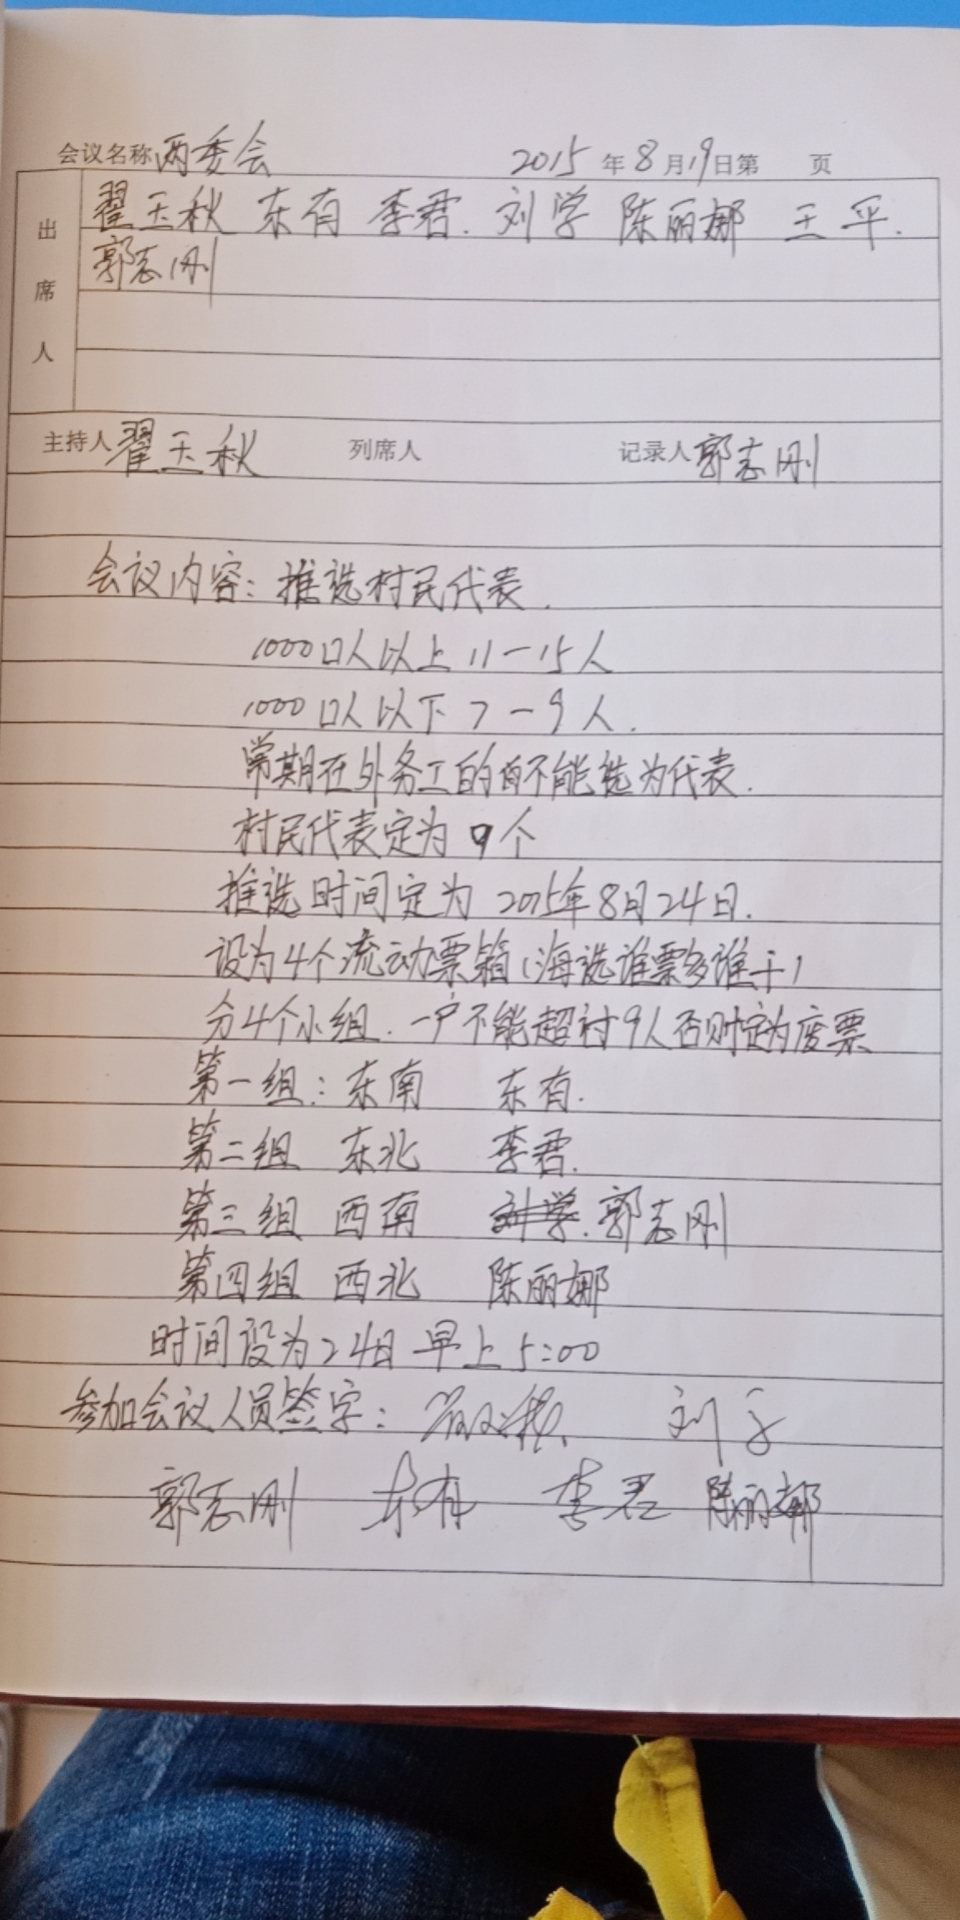 会议名称 两委会 2015 年 8 月 19 日第 页
出席人
翟玉秋 东有 李君. 刘学 陈丽娜 王平.
郭志刚
主持人 翟玉秋 列席人 记录人 郭志刚
会议内容: 推选村民代表.
1000口人以上 11一15人
1000口人以下 7一9人.
常期在外务工的 不能选为代表.
村民代表定为 9个
推选时间定为 2015年8月24日.
设为4个流动票箱(海选谁票多谁干)
分4个小组. 一户不能超过9人否则定为废票
第一组: 东南 东有.
第二组 东北 李君.
第三组 西南 刘学. 郭志刚
第四组 西北 陈丽娜
时间设为24日 早上 5:00
参加会议人员签字: 刘学
郭志刚 东有 李君 陈丽娜